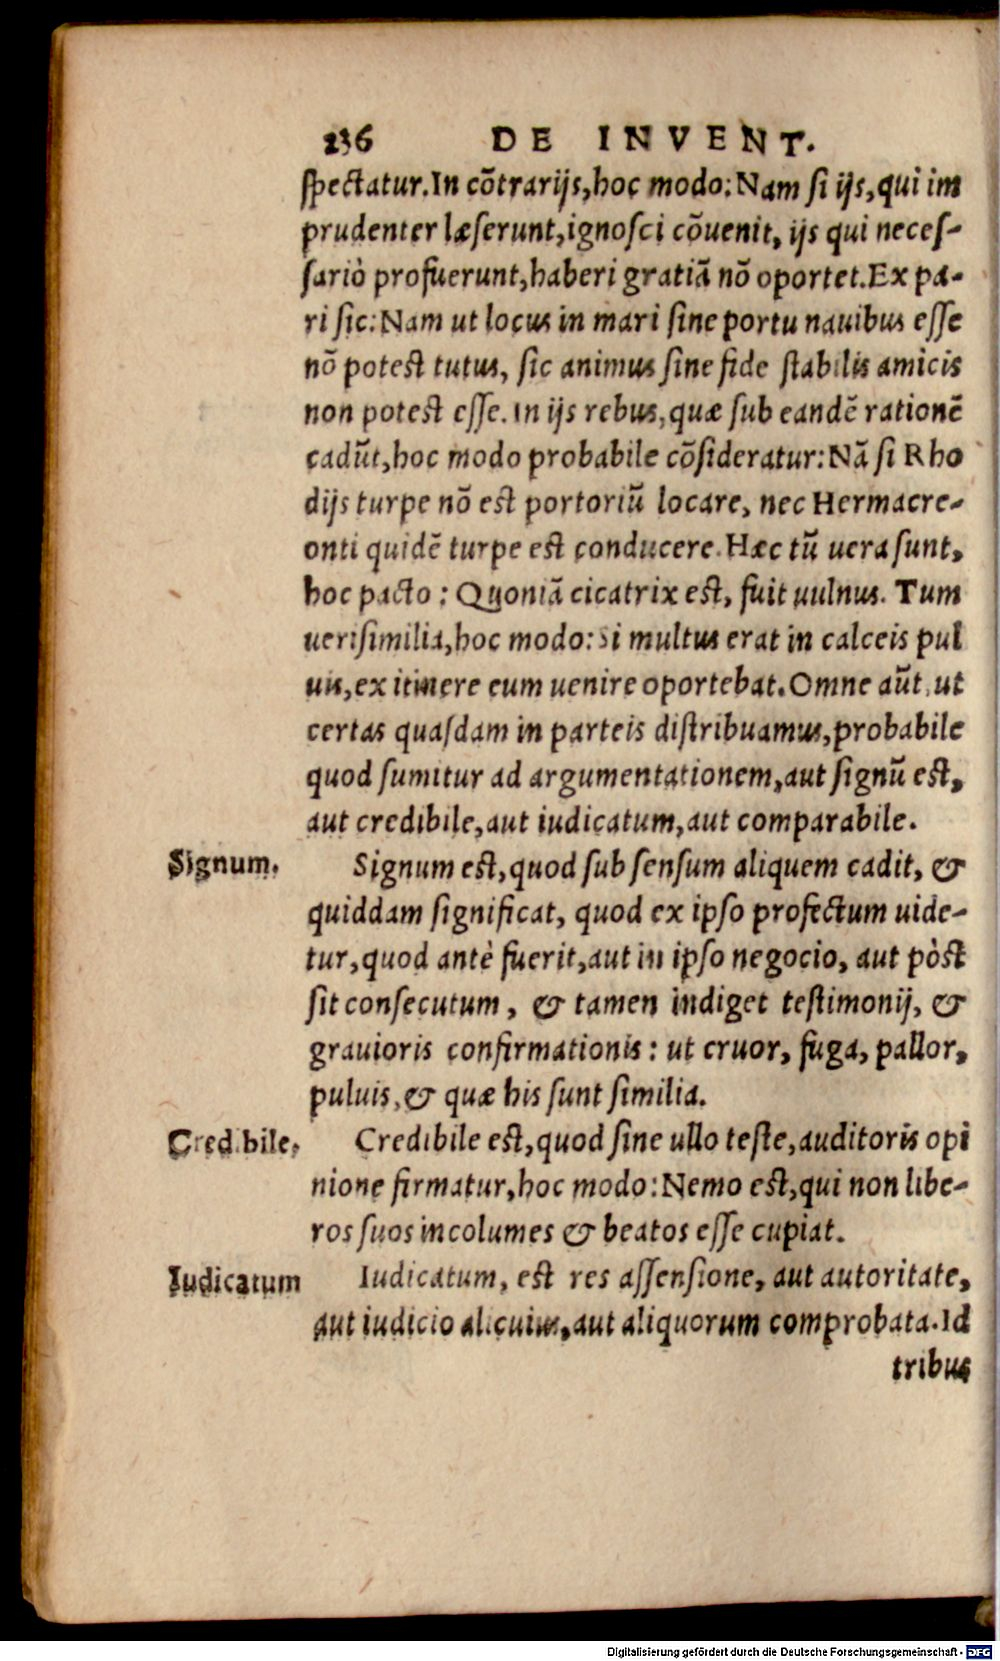 236 DE INVENT.
spectatur. In cõtrarijs, hoc modo: Nam si ijs, qui im
prudenter læserunt, ignosci cõuenit, ijs qui neces-
sariò profuerunt, haberi gratiã nõ oportet. Ex pa-
ri sic: Nam ut locus in mari sine portu nauibus esse
nõ potest tutus, sic animus sine fide stabilis amicis
non potest esse. In ijs rebus, quæ sub eandẽ rationẽ
cadũt, hoc modo probabile cõsideratur: Nã si Rho
dijs turpe nõ est portoriũ locare, nec Hermacre-
onti quidẽ turpe est conducere. Hæc tũ uera sunt,
hoc pacto: Quoniã cicatrix est, fuit uulnus. Tum
uerisimilia, hoc modo: Si multus erat in calceis pul
uis, ex itinere eum uenire oportebat. Omne aũt, ut
certas quasdam in parteis distribuamus, probabile
quod sumitur ad argumentationem, aut signũ est,
aut credibile, aut iudicatum, aut comparabile.
Signum.
Signum est, quod sub sensum aliquem cadit, &
quiddam significat, quod ex ipso profectum uide-
tur, quod antè fuerit, aut in ipso negocio, aut pòst
sit consecutum, & tamen indiget testimonij, &
grauioris confirmationis: ut cruor, fuga, pallor,
puluis, & quæ his sunt similia.
Credibile.
Credibile est, quod sine ullo teste, auditoris opi
nione firmatur, hoc modo: Nemo est, qui non libe-
ros suos incolumes & beatos esse cupiat.
Iudicatum
Iudicatum, est res assensione, aut autoritate,
aut iudicio alicuius, aut aliquorum comprobata. Id
tribus
Digitalisierung gefördert durch die Deutsche Forschungsgemeinschaft - DFG